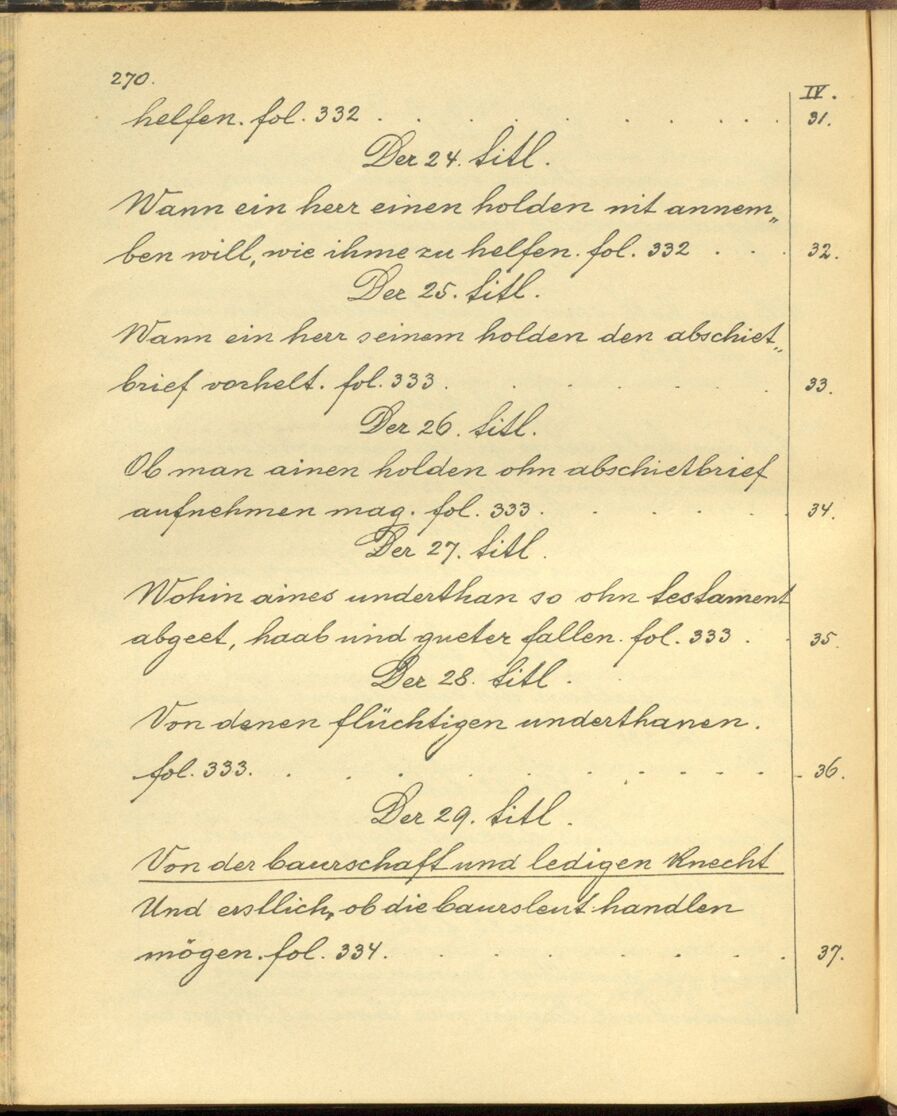 270.
IV.
helfen. fol. 332 . . . . . . . . . 31.
Der 24. titl.
Wann ein herr einen holden nit annem„
ben will, wie ihme zu helfen. fol. 332 . . . 32.
Der 25. titl.
Wann ein herr seinem holden den abschiet„
brief vorhelt. fol. 333 . . . . . . 33.
Der 26. titl.
Ob man ainen holden ohn abschietbrief
aufnehmen mag. fol. 333 . . . . . 34.
Der 27. titl.
Wohin aines underthan so ohn testament
abgeet, haab und gueter fallen. fol. 333 . . 35.
Der 28. titl.
Von denen flüchtigen underthanen.
fol. 333. . . . . . . . . . . . 36.
Der 29. titl.
Von der baurschaft und ledigen knecht
Und erstlich, ob die baursleut handlen
mögen. fol. 334. . . . . . . . 37.